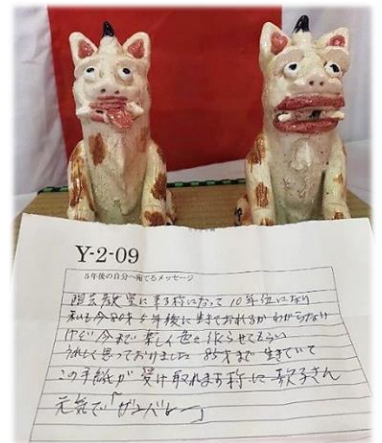 Y-2-09
5年後の自分へ宛てるメッセージ
陶芸教室に来る様になって10年位になり
私も今80才5年後に生きておれるかわからない
けど今まで楽しく色々作らせてもらい
うれしく思っておりました 85才まで生きていて
この手紙が受け取れます様に 歌子さん
元気で「ガンバレー」